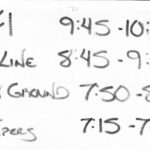 #1 9:45-10:
LINE 8:45-9:
GROUND 7:50-8
PERS 7:15-7